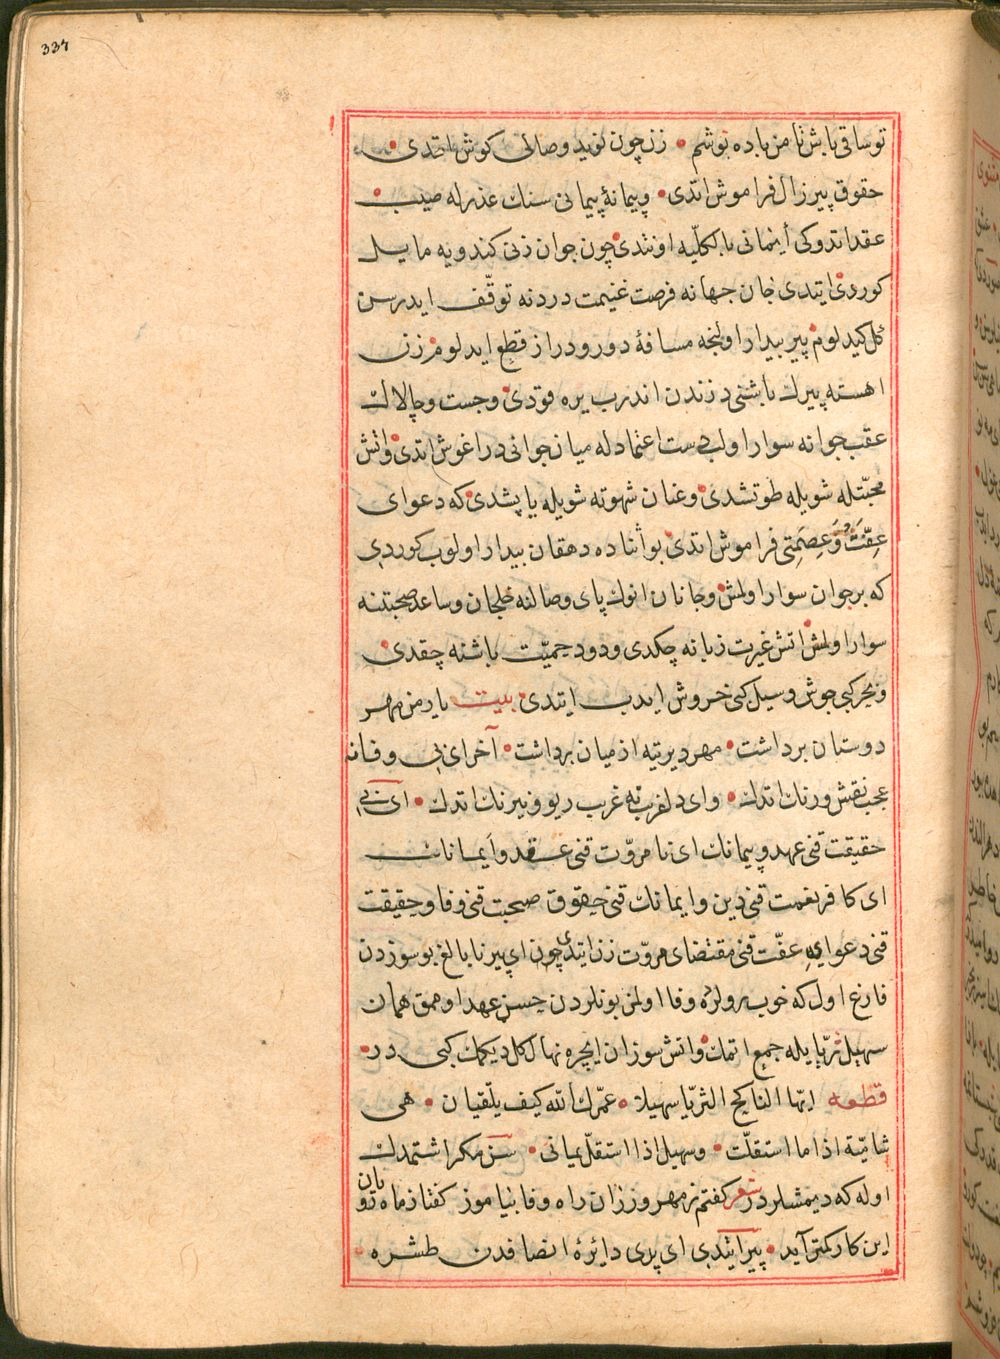 337
تو ساقی باش تا من باده نوشم • زن چون نوید وصالی کوش اتمدی •
حقوق پیر زال فراموش اتدی • و پیمانهٔ پیمانی سنك عذرله صیب •
عقد اتدوکی أیمانی بالکلیه اونتدی چون جوان زنی کندویه مایل
کوردی ایتدی جان جهانه فرصت غنیمت در دنه توقّف ایدرسن
کل کیدلوم پیر بیدار اولنجه مسافهٔ دور و دراز قطع ایدلوم زن
اهسته پیرك باشنی دزندن اندرب یره قودی و جست و چالاك
عقب جوانه سوار اولب دست اعتمادله میان جوانی در اغوش اتدی و اتش
محبّتله شویله طوتشدی و عنان شهوته شویله یاپشدی که دعوای
عِفّتْ وَعِصمَتی فراموش اتدی بو أثناده دهقان بیدار اولوب کوردی
که بر جوان سوار اولمش و جانان انوك پای وصالنه خلجان و ساعد صحبتنه
سوار اولمش اتش غیرت زبانه چکدی و دود حمیّت باشنه چقدی
و بحر کبی جوش و سیل کبی خروش ایدب ایتدی بیت یار من مهر
دوستان برداشت • مهر دیرینه از میان برداشت • آخر ای بی وفا نه
عجب نقش و رنك اتدك • و ای دلفریب نه غریب ریو و نیرنك اتدك • ای بی
حقیقت قنی عهد و پیمانك ای نا مروّت قنی عقد و أیمانك
ای کافر نعمت قنی دین و ایمانك قنی حقوق صحبت قنی وفا و حقیقت
قنی دعوای عفّت قنی مقتضای مروّت زن ایتدی چون ای پیر نابالغ بو سوزدن
فارغ اول که خوب رولره وفا اولمز بونلردن حسن عهد اومق همان
سهیل ثریّا یله جمع اتمك و اتش سوزان ایچره نهال کل دیکمك کبی در •
قطعه ایّها الناکح الثریّا سهیلا • عمّرك اللّه کیف یلتقیان • هی
شامیّة اذا ما استقلّت • و سهیل اذا استقلّ یمانی • سن مکر اشتمدك
اوله که دیمشلردر شعر کفتم ز مهر و زان راه وفا بیاموز کفتا ز ماه رویان
این کار کمتر آید • پیر ایتدی ای پری دائرهٔ انصافدن طشره •